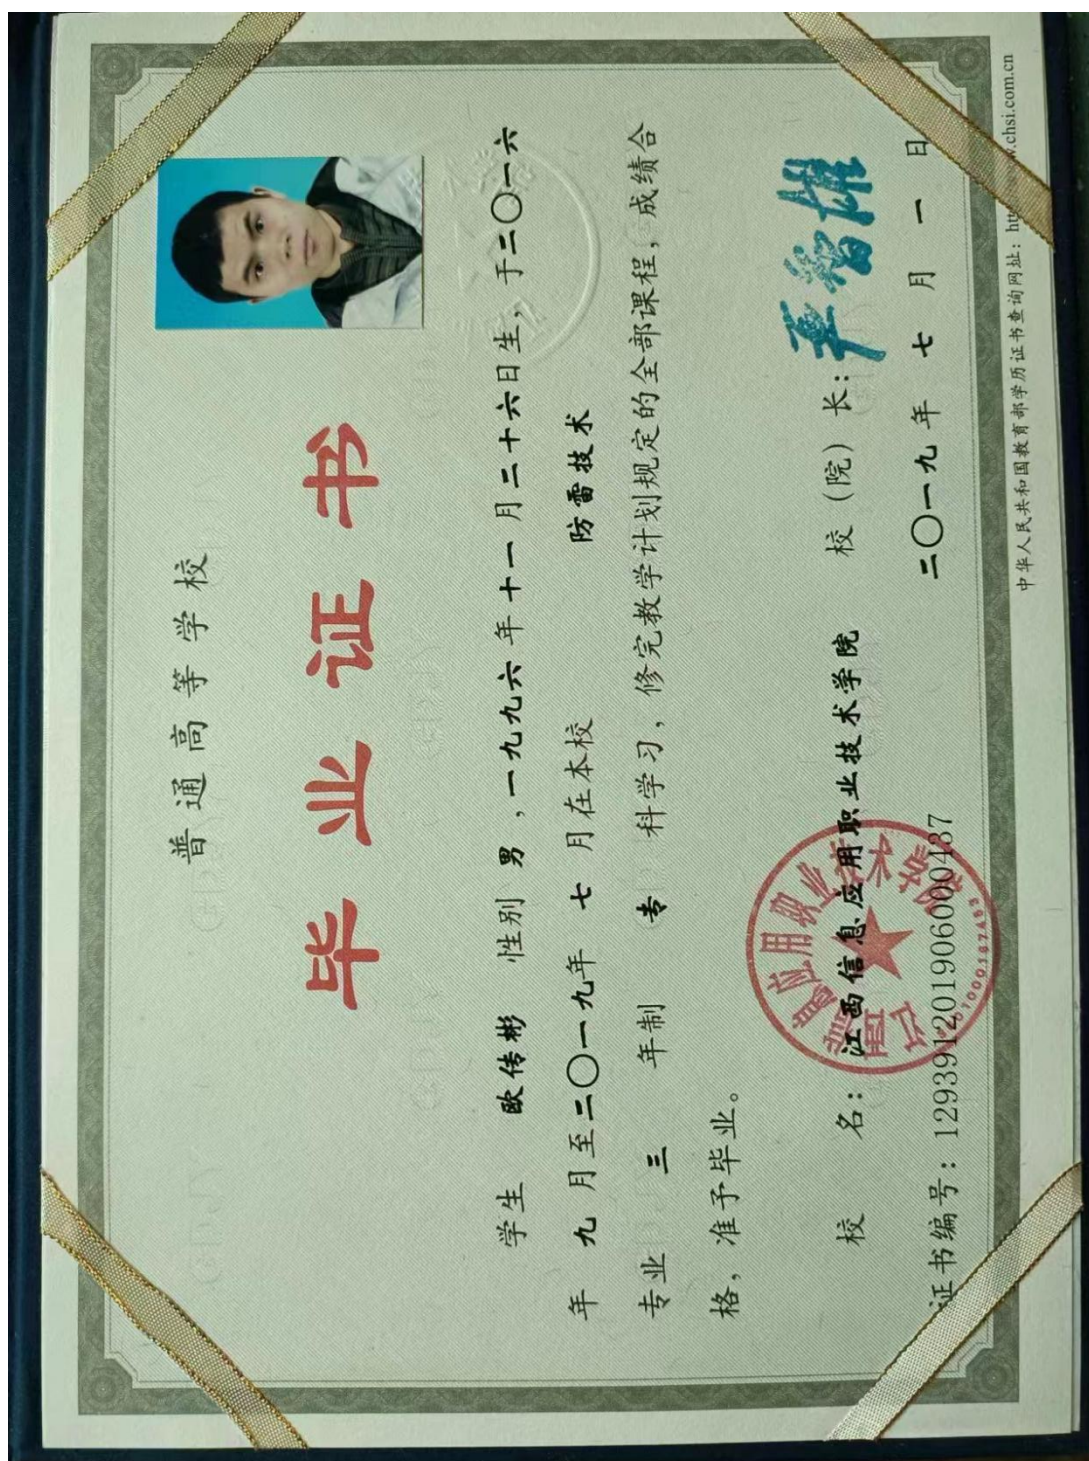 普通高等学校
毕业证书
学生 欧传彬 性别 男 ,一九九六年 十一 月 二十六日生,于二〇一六
年 九 月至二〇一九年 七 月在本校 防雷技术
专业 三 年制 专 科学习,修完教学计划规定的全部课程,成绩合
格,准予毕业。
校 名:江西信息应用职业技术学院 校(院)长:
证书编号:129391201906000437 二〇一九年 七 月 一 日
中华人民共和国教育部学历证书查询网址:
.chsi.com.cn